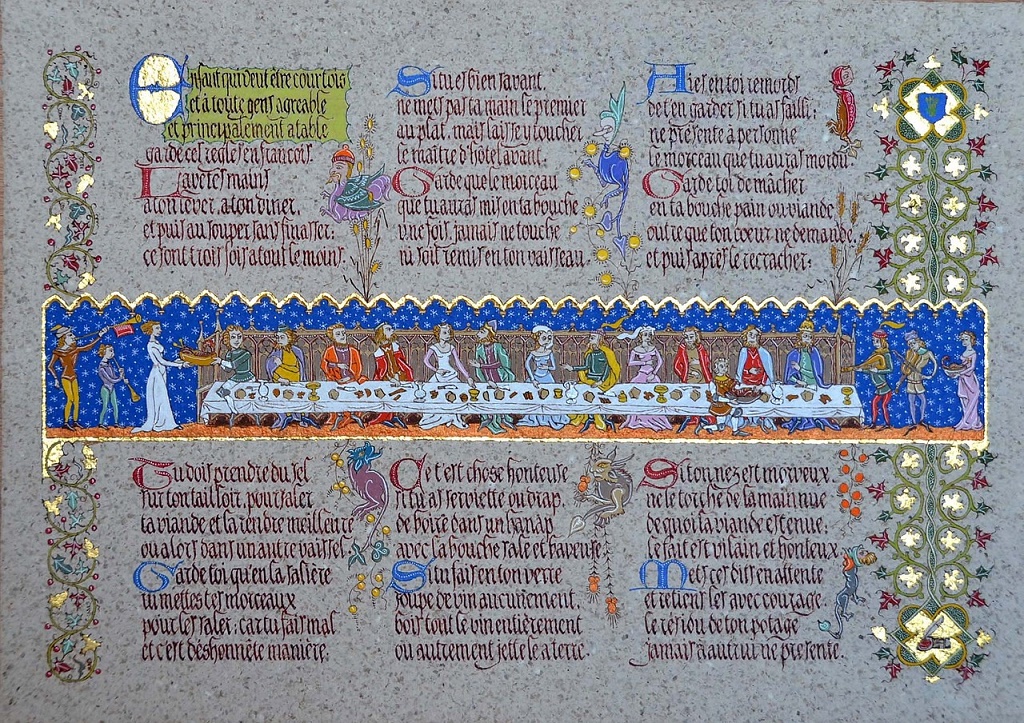 Enfant qui veut être courtois
et à toute gens agreable
et principalement a table
garde ces regles en françois.
Lave tes mains
a ton lever, a ton diner,
et puis au souper sans finasser:
ce sont trois fois a tout le moins.
Si tu es bien savant,
ne mets pas ta main le premier
au plat, mais laisse y toucher
le maître d'hôtel avant.
Garde que le morceau
que tu auras mis en ta bouche
une fois, jamais ne touche
ni soit remis en ton vaisseau.
Aies en toi remords
de t'en garder si tu as failli:
ne présente à personne
le morceau que tu auras mordu.
Garde toi de macher
en ta bouche pain ou viande,
outre que ton cœur ne demande,
et puis après le recracher:
Tu dois prendre du sel
sur ton tailloir, pour saler
ta viande et la rendre meilleure
ou alors dans un autre vaissel.
Garde toi qu'en la salière
tu mettes tes morceaux
pour les saler; car tu fais mal
et c'est déshonnête manière.
Ce t'est chose honteuse
si tu as serviette ou drap,
de boire dans un hanap
avec la bouche sale et baveuse.
Si tu fais en ton verre
soupe de vin aucunement,
bois tout le vin entièrement
ou autrement jette le a terre.
Si ton nez est morveux
ne le torche de la main nue
de quoi la viande est tenue:
le fait est vilain et honteux.
Mets ces dits en attente
et retiens les avec courage
le résidu de ton potage
jamais à autrui ne présente.